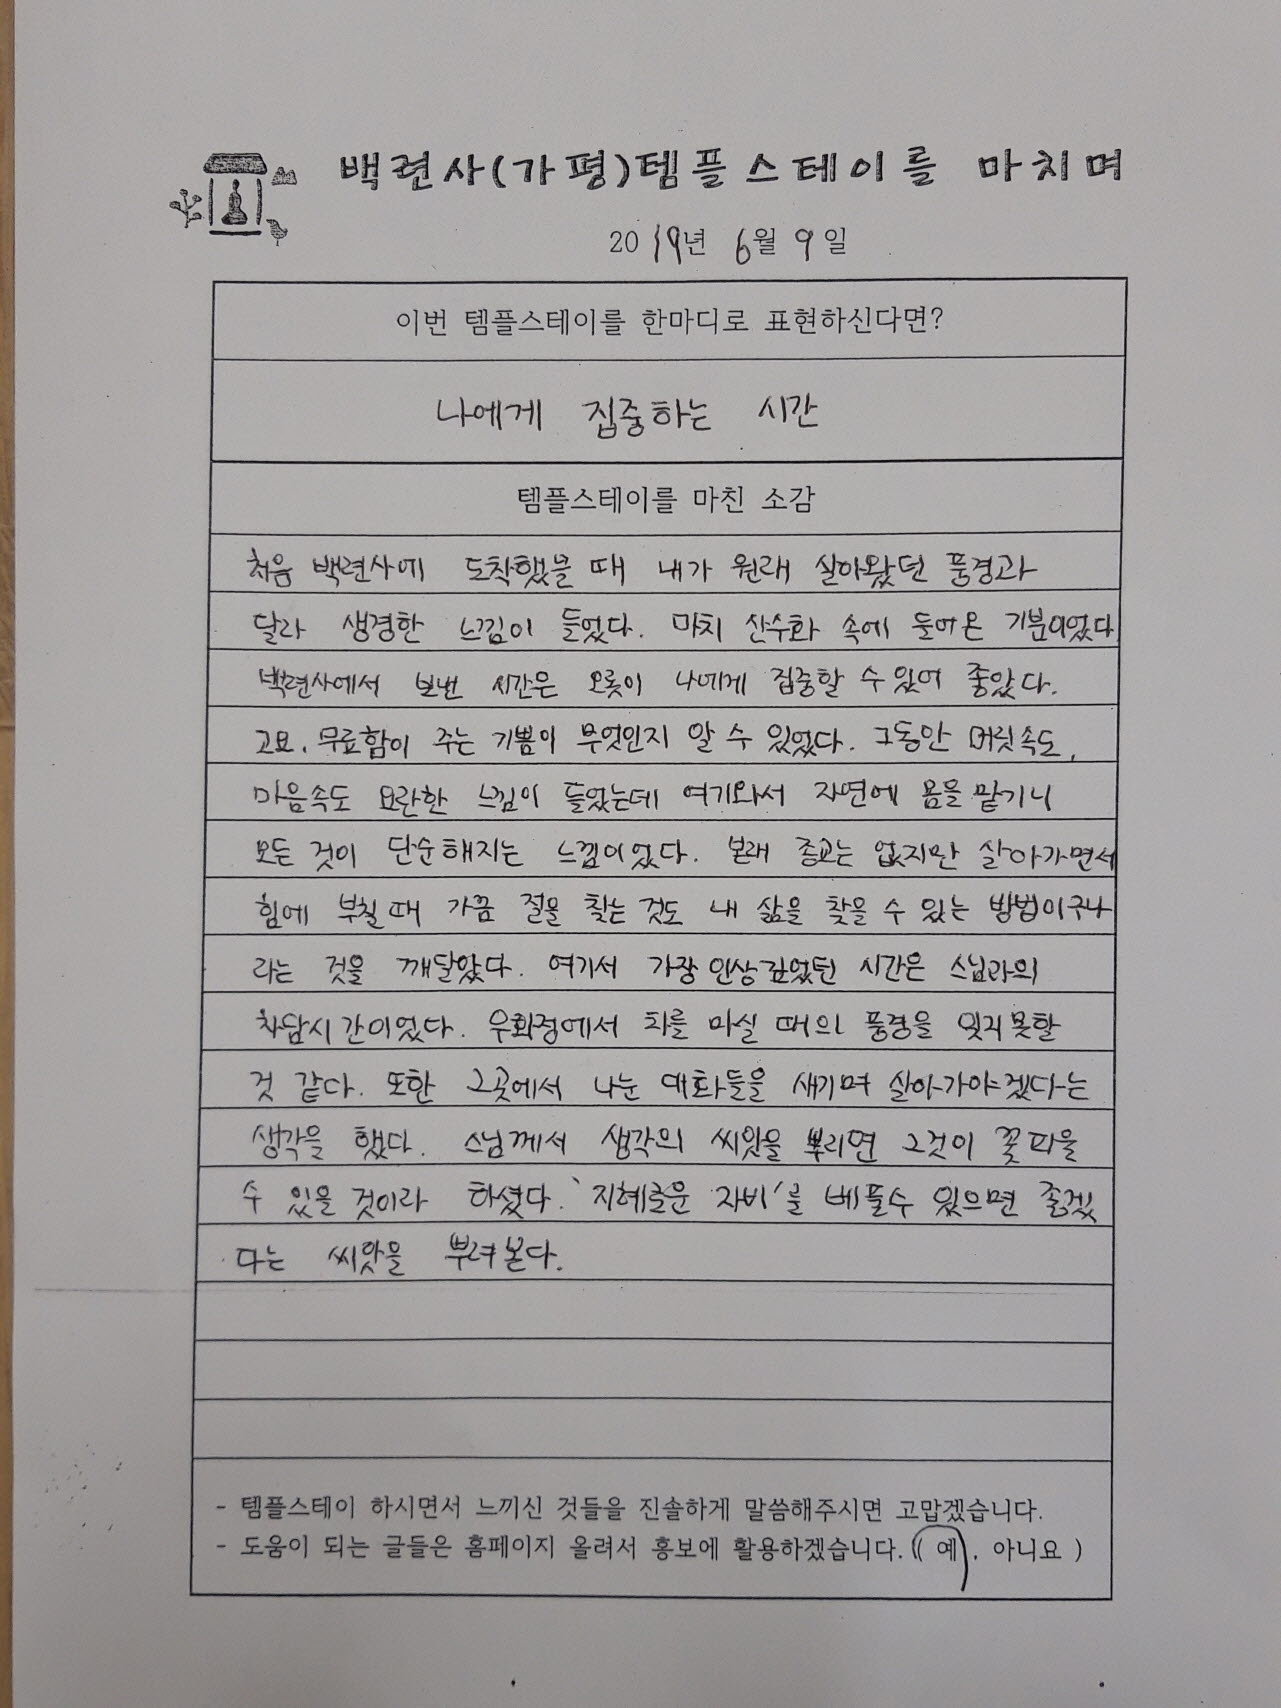 백련사(가평)템플스테이를 마치며
2019년 6월 9일
이번 템플스테이를 한마디로 표현하신다면?
나에게 집중하는 시간
템플스테이를 마친 소감
처음 백련사에 도착했을 때 내가 원래 살아왔던 풍경과
달라 생경한 느낌이 들었다. 마치 산수화 속에 들어온 기분이었다
백련사에서 보낸 시간은 오롯이 나에게 집중할 수 있어 좋았다.
고요, 무료함이 주는 기쁨이 무엇인지 알 수 있었다. 그동안 머릿속도,
마음속도 요란한 느낌이 들었는데 여기와서 자연에 몸을 맡기니
모든 것이 단순해지는 느낌이었다. 본래 종교는 없지만 살아가면서
힘에 부칠 때 가끔 절을 찾는 것도 내 삶을 찾을 수 있는 방법이구나
라는 것을 깨달았다. 여기서 가장 인상깊었던 시간은 스님과의
차담시간이었다. 우화정에서 차를 마실 때의 풍경을 잊지 못할
것 같다. 또한 그곳에서 나눈 대화들을 새기며 살아가야겠다는
생각을 했다. 스님께서 생각의 씨앗을 뿌리면 그것이 꽃피울
수 있을 것이라 하셨다. '지혜로운 자비'를 베풀수 있으면 좋겠
다는 씨앗을 뿌려본다.
- 템플스테이 하시면서 느끼신 것들을 진솔하게 말씀해주시면 고맙겠습니다.
- 도움이 되는 글들은 홈페이지 올려서 홍보에 활용하겠습니다. ( 예, 아니요 )